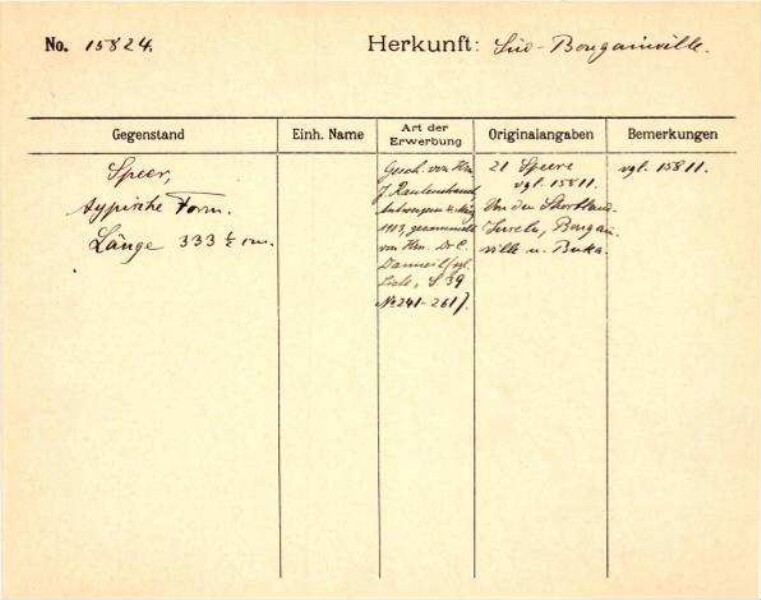 No. 15824.
Herkunft: Süd-Bougainville.
Gegenstand
Einh. Name
Art der Erwerbung
Originalangaben
Bemerkungen
Speer,
typische Form.
Länge 333 ½ cm.
Gesch. von Hrn
J. Rautenstrauch,
Antwerpen
1913, gesammelt
von Hrn. Dr C.
Danneil (vgl.
Liste, S. 39
No 241-261).
21 Speere
vgl. 15811.
Von den Shortland-
Inseln, Bougain-
ville u. Buka.
vgl. 15811.